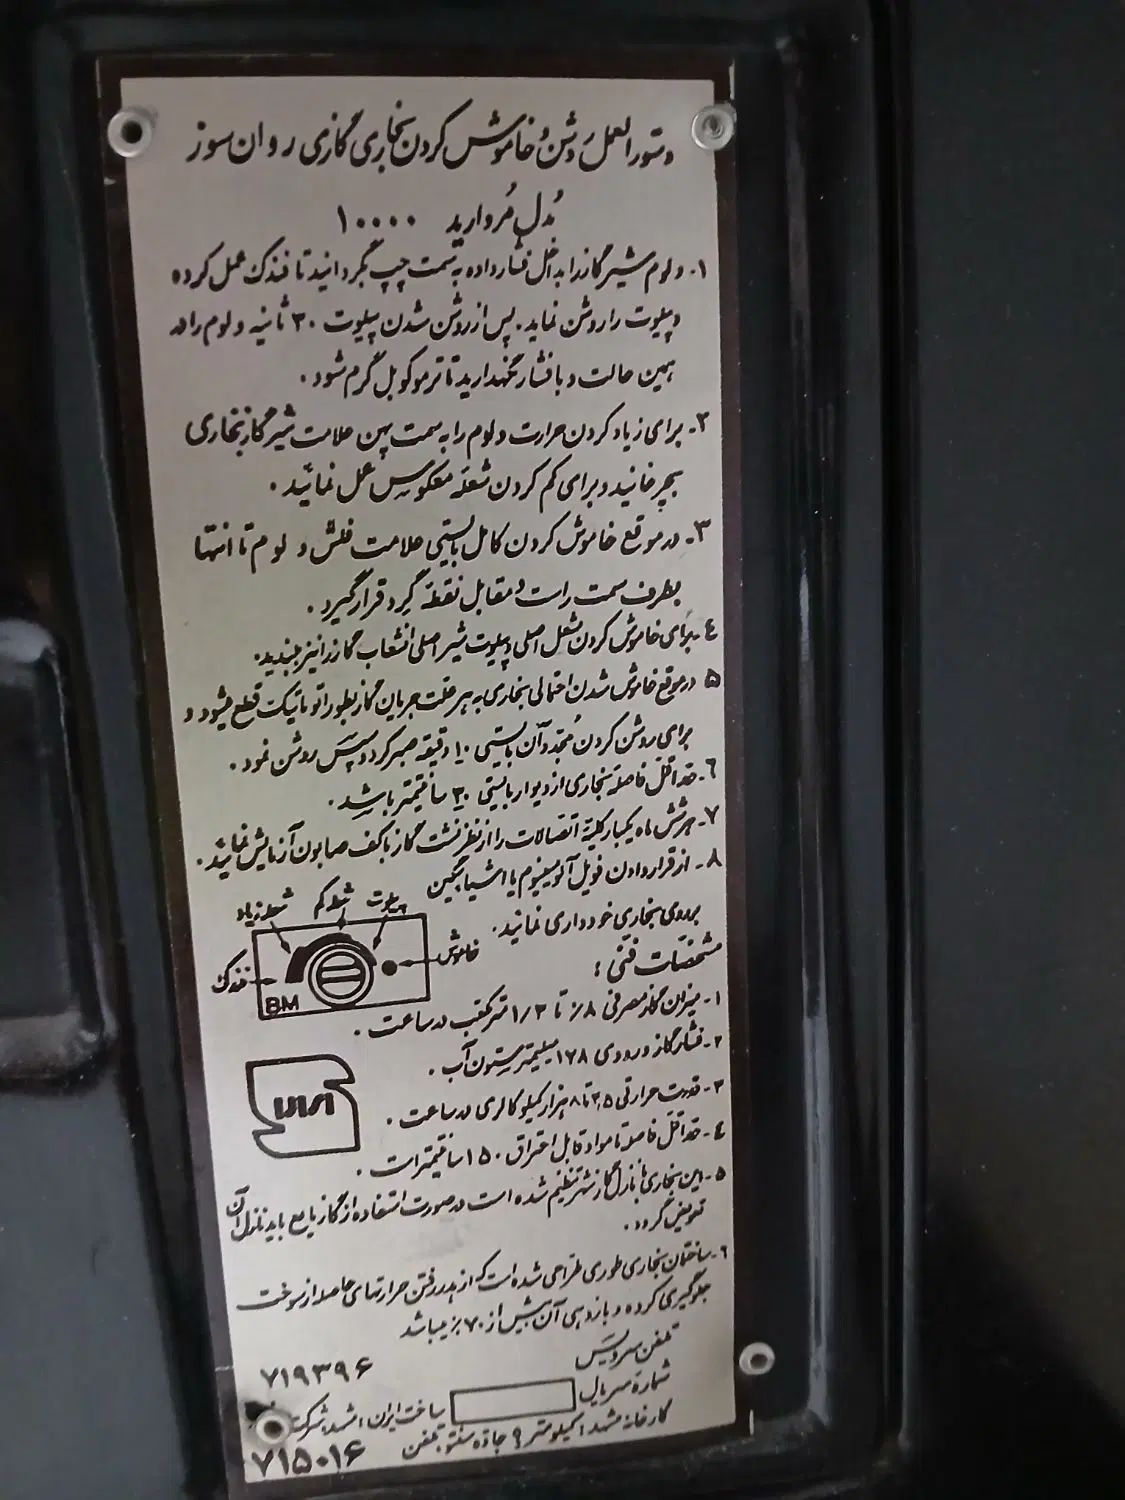 دستورالعمل روشن و خاموش کردن بخاری گازی روان سوز
مُدل مُروارید ۱۰۰۰۰
۱- ولوم شیر گاز را به داخل فشار داده به سمت چپ بگردانید تا فندک عمل کرده
و پیلوت را روشن نماید. پس از روشن شدن پیلوت ۳۰ ثانیه ولوم را در
همین حالت و با فشار نگهدارید تا ترموکوبل گرم شود.
۲- برای زیاد کردن حرارت ولوم را به سمت پهن علامت شیر گاز بخاری
بچرخانید و برای کم کردن شعله معکوس عمل نمائید.
۳- در موقع خاموش کردن کامل بایستی علامت فلش ولوم تا انتها
بطرف سمت راست و مقابل نقطه گرد قرار گیرد.
٤- برای خاموش کردن مشعل اصلی و پیلوت شیر اصلی انشعاب گاز را نیز ببندید.
۵ در موقع خاموش شدن احتمالی بخاری به هر علت جریان گاز بطور اتوماتیک قطع میشود و
برای روشن کردن مجدد آن بایستی ۱۰ دقیقه صبر کرد و سپس روشن نمود.
۶- حداقل فاصله بخاری از دیوار بایستی ۳۰ سانتیمتر باشد.
۷- هر شش ماه یکبار کلیهٔ اتصالات را از نظر نشت گاز با کف صابون آزمایش نمائید.
۸- از قرار دادن فویل آلومینیوم یا اشیا سنگین
بر روی بخاری خودداری نمائید.
پیلوت
شعله کم
شعله زیاد
خاموش
فندک
BM
مشخصات فنی:
۱- میزان گاز مصرفی ۰/۸ تا ۱/۳ متر مکعب در ساعت.
۲- فشار گاز ورودی ۱۷۸ میلیمتر ستون آب.
۳- قدرت حرارتی ۲,۵ تا ۸ هزار کیلو کالری در ساعت.
٤- حداقل فاصله تا مواد قابل احتراق ۱۵۰ سانتیمتر است.
۵- این بخاری با نازل گاز شهر تنظیم شده است در صورت استفاده از گاز مایع باید نازل آن
تعویض گردد.
۶- ساختمان بخاری طوری طراحی شده است که از هدر رفتن حرارتهای حاصل از سوخت
جلوگیری کرده و بازدهی آن بیش از ۷۰٪ میباشد
تلفن سرویس ۷۱۹۳۹۶
شماره سریال ساخت ایران: مشهد: شرکت
کارخانه مشهد: کیلومتر ۹ جاده سنتو تلفن ۷۱۵۰۱۶